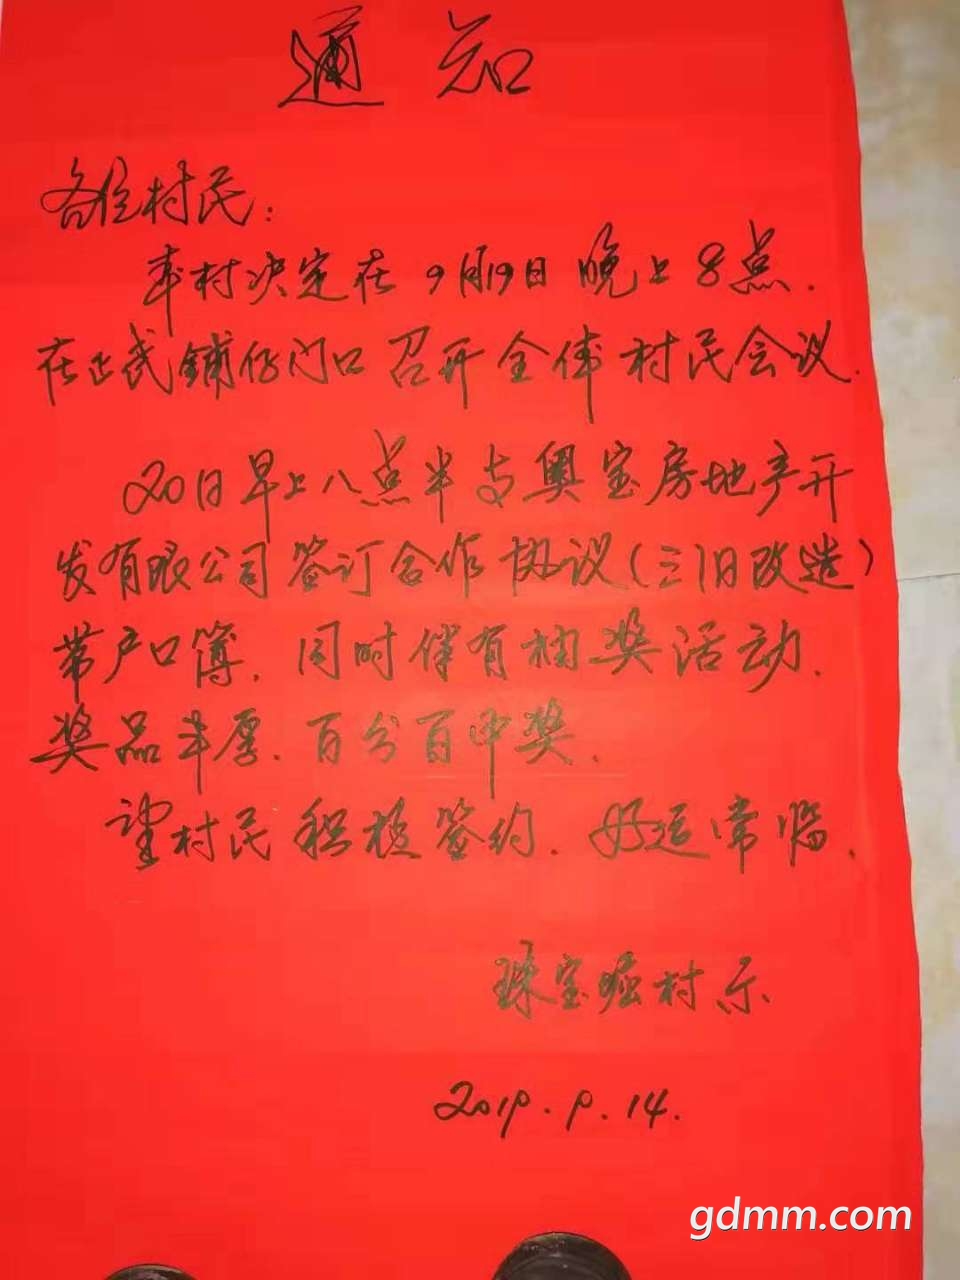 通知
各位村民:
本村决定在9月19日晚上8点.
在正武铺仔门口召开全体村民会议.
20日早上八点半与奥宝房地产开
发有限公司签订合作协议(三旧改造)
带户口簿.同时伴有抽奖活动.
奖品丰厚.百分百中奖.
望村民积极签约.好运常临.
珠宝垌村示
2019.9.14.
gdmm.com